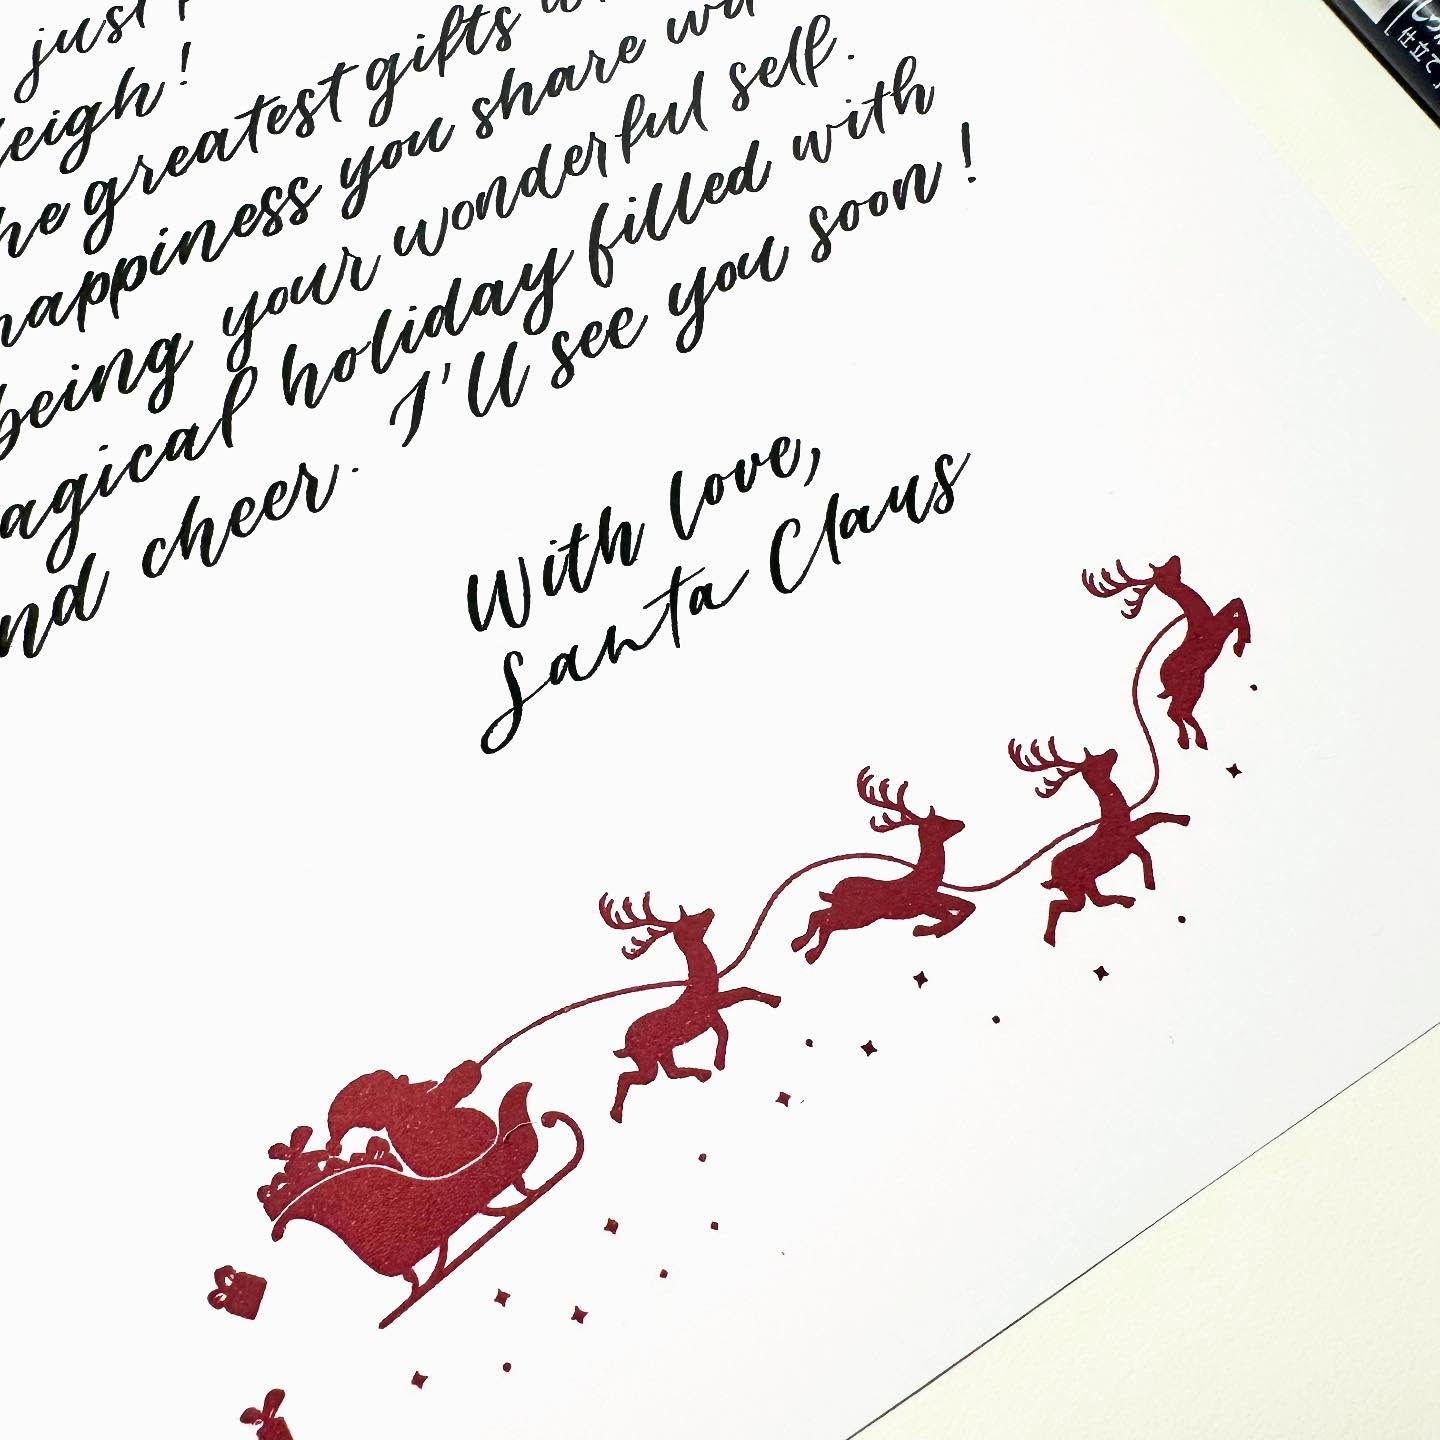 just
eigh!
he greatest gifts
happiness you share
being your wonderful self.
agical holiday filled with
nd cheer. I'll see you soon!
With love,
Santa Claus
仕立て